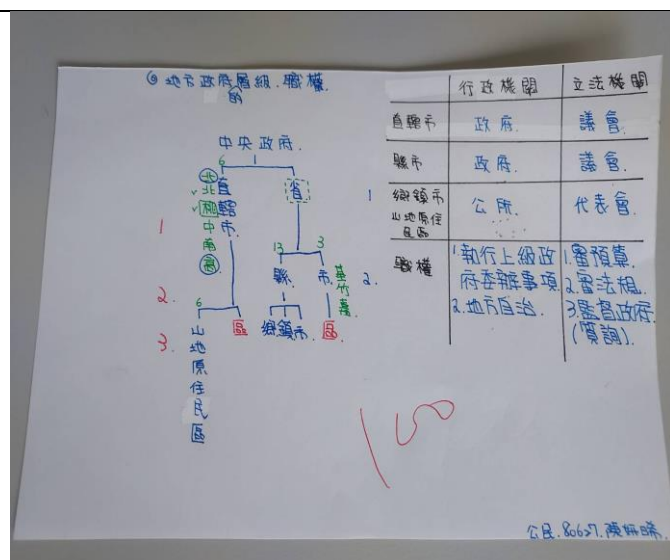 ◎地方政府的層級.職權.
中央政府.
6
直轄市
北北桃中南高
省
1
2.
3.
13
3
縣
市
基竹嘉
6
山地原住民區
區
鄉鎮市
區
1
2.
行政機關 立法機關
直轄市 政府. 議會.
縣市 政府. 議會.
鄉鎮市 山地原住民區 公所. 代表會.
職權
1.執行上級政府委辦事項
2.地方自治.
1.審預算.
2.審法規.
3.監督政府.
(質詢).
100
公民.80627.陳